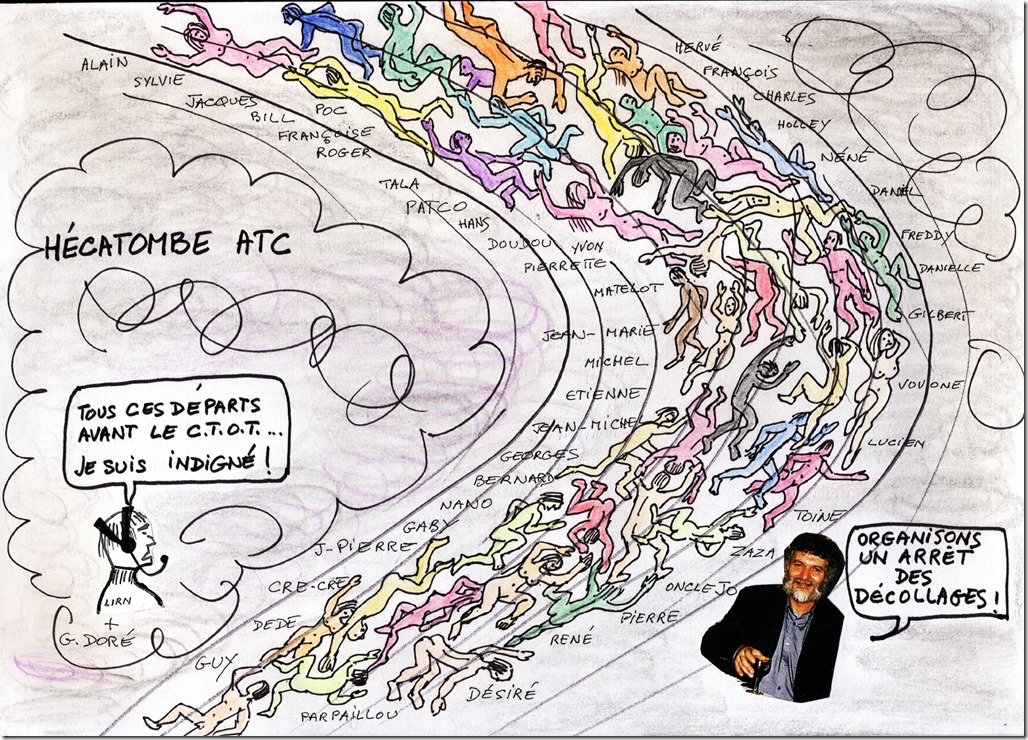 ALAIN
SYLVIE
JACQUES
BILL
POC
FRANÇOISE
ROGER
TALA
PATCO
HANS
DOUDOU
YVON
PIERRETTE
MATELOT
JEAN-MARIE
MICHEL
ETIENNE
JEAN-MICHEL
GEORGES
BERNARD
NANO
GABY
J-PIERRE
CRE-CRE
DEDE
GUY
HERVÉ
FRANÇOIS
CHARLES
HOLLEY
NÉNÉ
DANIEL
FREDDY
DANIELLE
GILBERT
VOVONE
LUCIEN
TOINE
ZAZA
ONCLE JO
PIERRE
RENÉ
DÉSIRÉ
PARPAILLOU
HÉCATOMBE ATC
TOUS CES DÉPARTS
AVANT LE C.T.O.T....
JE SUIS INDIGNÉ !
LIRN
+
G. DORÉ
ORGANISONS
UN ARRÊT
DES
DÉCOLLAGES !